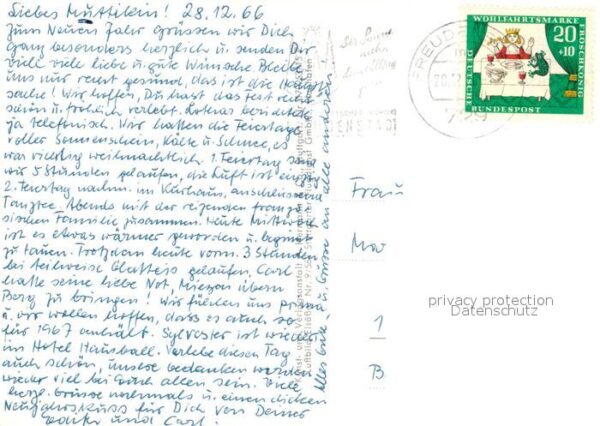 Liebes Muttilein! 28.12.66
Zum Neuen Jahr grüssen wir Dich
ganz besonders herzlich u. senden Dir
viele liebe u. gute Wünsche. Bleibe
uns nur recht gesund, das ist die Haupt-
sache! Wir hoffen, Du hast das Fest recht
schön u. fröhlich verlebt. Lothar berichtete
ja telefonisch. Wir hatten die Feiertage
voller Sonnenschein, Kälte u. Schnee, es
war richtig weihnachtlich. 1. Feiertag sind
wir 5 Stunden gelaufen, die Luft ist einzig
2. Feiertag nachm. im Kurhaus, anschliessend
Tanztee. Abends mit der reizenden franzö-
sischen Familie zusammen. Heute Mittwoch
ist es etwas wärmer geworden u. beginnt
zu tauen. Trotzdem heute vorm. 3 Stunden
bei teilweise Glatteis gelaufen, Carl
hatte seine liebe Not, übern
Berg zu bringen! Wir fühlen uns prima
u. wir wollen hoffen, dass es auch so
für 1967 anhält. Sylvester ist wieder
im Hotel Hausball. Verlebe diesen Tag
auch schön, unsere Gedanken werden
wieder viel bei Euch allen sein. Viele
herzl. Grüsse nochmals u. einen dicken
Neujahrskuss für Dich von Deiner
und Carl.
Alles Gute u. Grüsse an alle anderen!
FREUDEN
WOHLFAHRTSMARKE
20
+10
FROSCHKÖNIG
DEUTSCHE
BUNDESPOST
Frau
1
B
privacy protection
Datenschutz